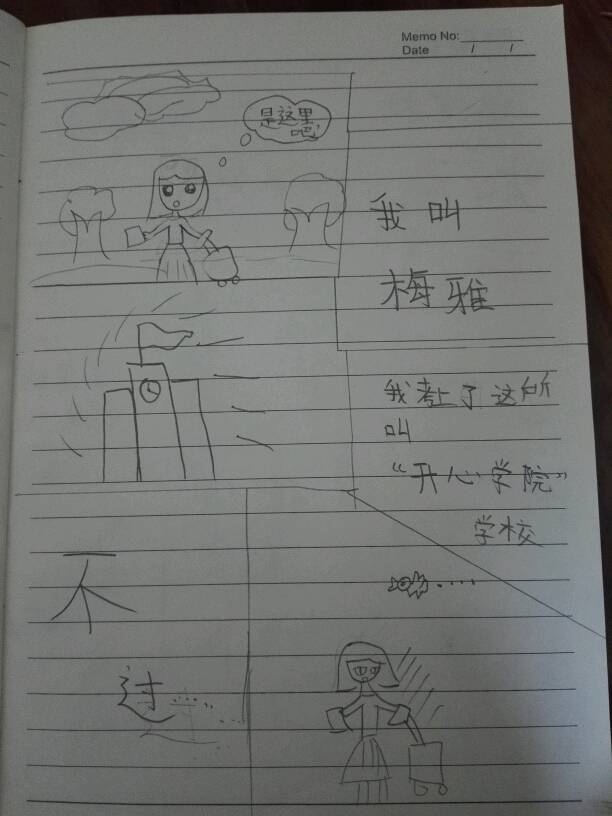 Memo No:
Date / /
是这里
吧
我 叫
梅雅
我考上了这所
叫
“开心学院”
学校
不
过……